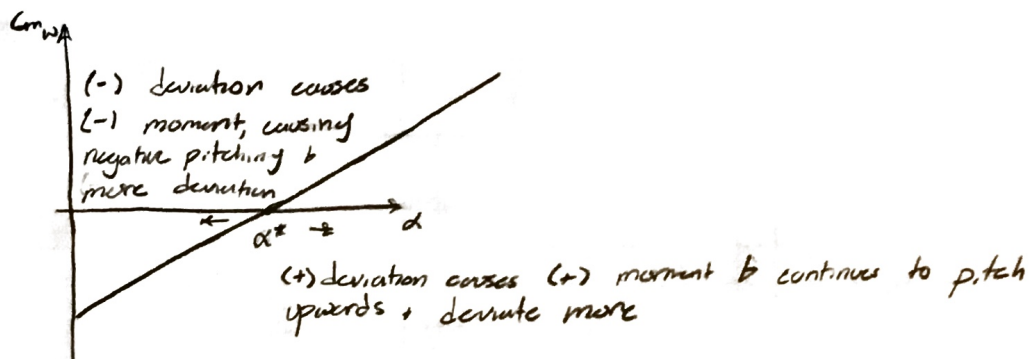 Cmw
(-) deviation causes
(-) moment, causing
negative pitching &
more deviation
α* α
(+) deviation causes (+) moment & continues to pitch
upwards + deviate more